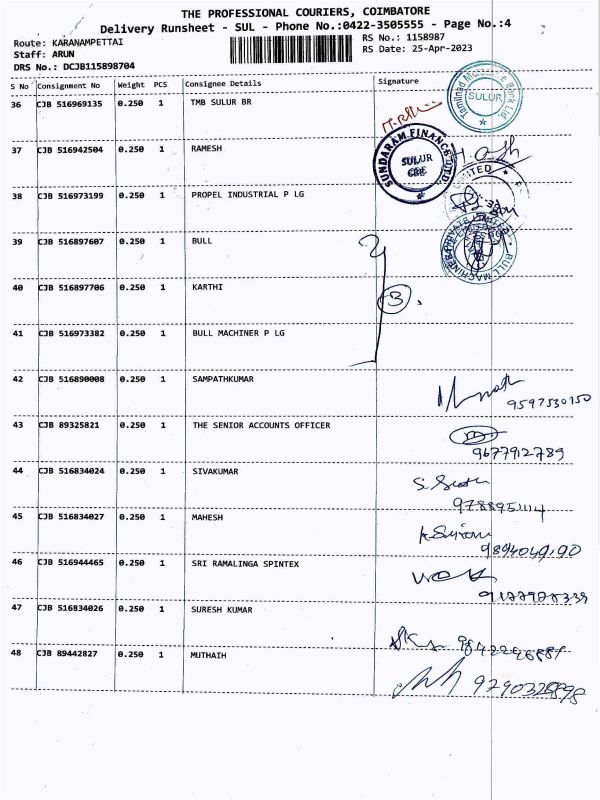 THE PROFESSIONAL COURIERS, COIMBATORE
Delivery Runsheet - SUL - Phone No.:0422-3505555 - Page No.:4
Route: KARANAMPETTAI RS No.: 1158987
Staff: ARUN RS Date: 25-Apr-2023
DRS No.: DCJB115898704
S No Consignment No Weight PCS Consignee Details Signature
36 CJB 516969135 0.250 1 TMB SULUR BR
SULUR
37 CJB 516942504 0.250 1 RAMESH
SUNDARAM FINANCE LTD
SULUR
CBE
38 CJB 516973199 0.250 1 PROPEL INDUSTRIAL P LG
39 CJB 516897607 0.250 1 BULL
40 CJB 516897706 0.250 1 KARTHI
3
41 CJB 516973382 0.250 1 BULL MACHINER P LG
42 CJB 516890008 0.250 1 SAMPATHKUMAR
9597530150
43 CJB 89325821 0.250 1 THE SENIOR ACCOUNTS OFFICER
9677912789
44 CJB 516834024 0.250 1 SIVAKUMAR
45 CJB 516834027 0.250 1 MAHESH
46 CJB 516944465 0.250 1 SRI RAMALINGA SPINTEX
47 CJB 516834026 0.250 1 SURESH KUMAR
48 CJB 89442827 0.250 1 MUTHAIH